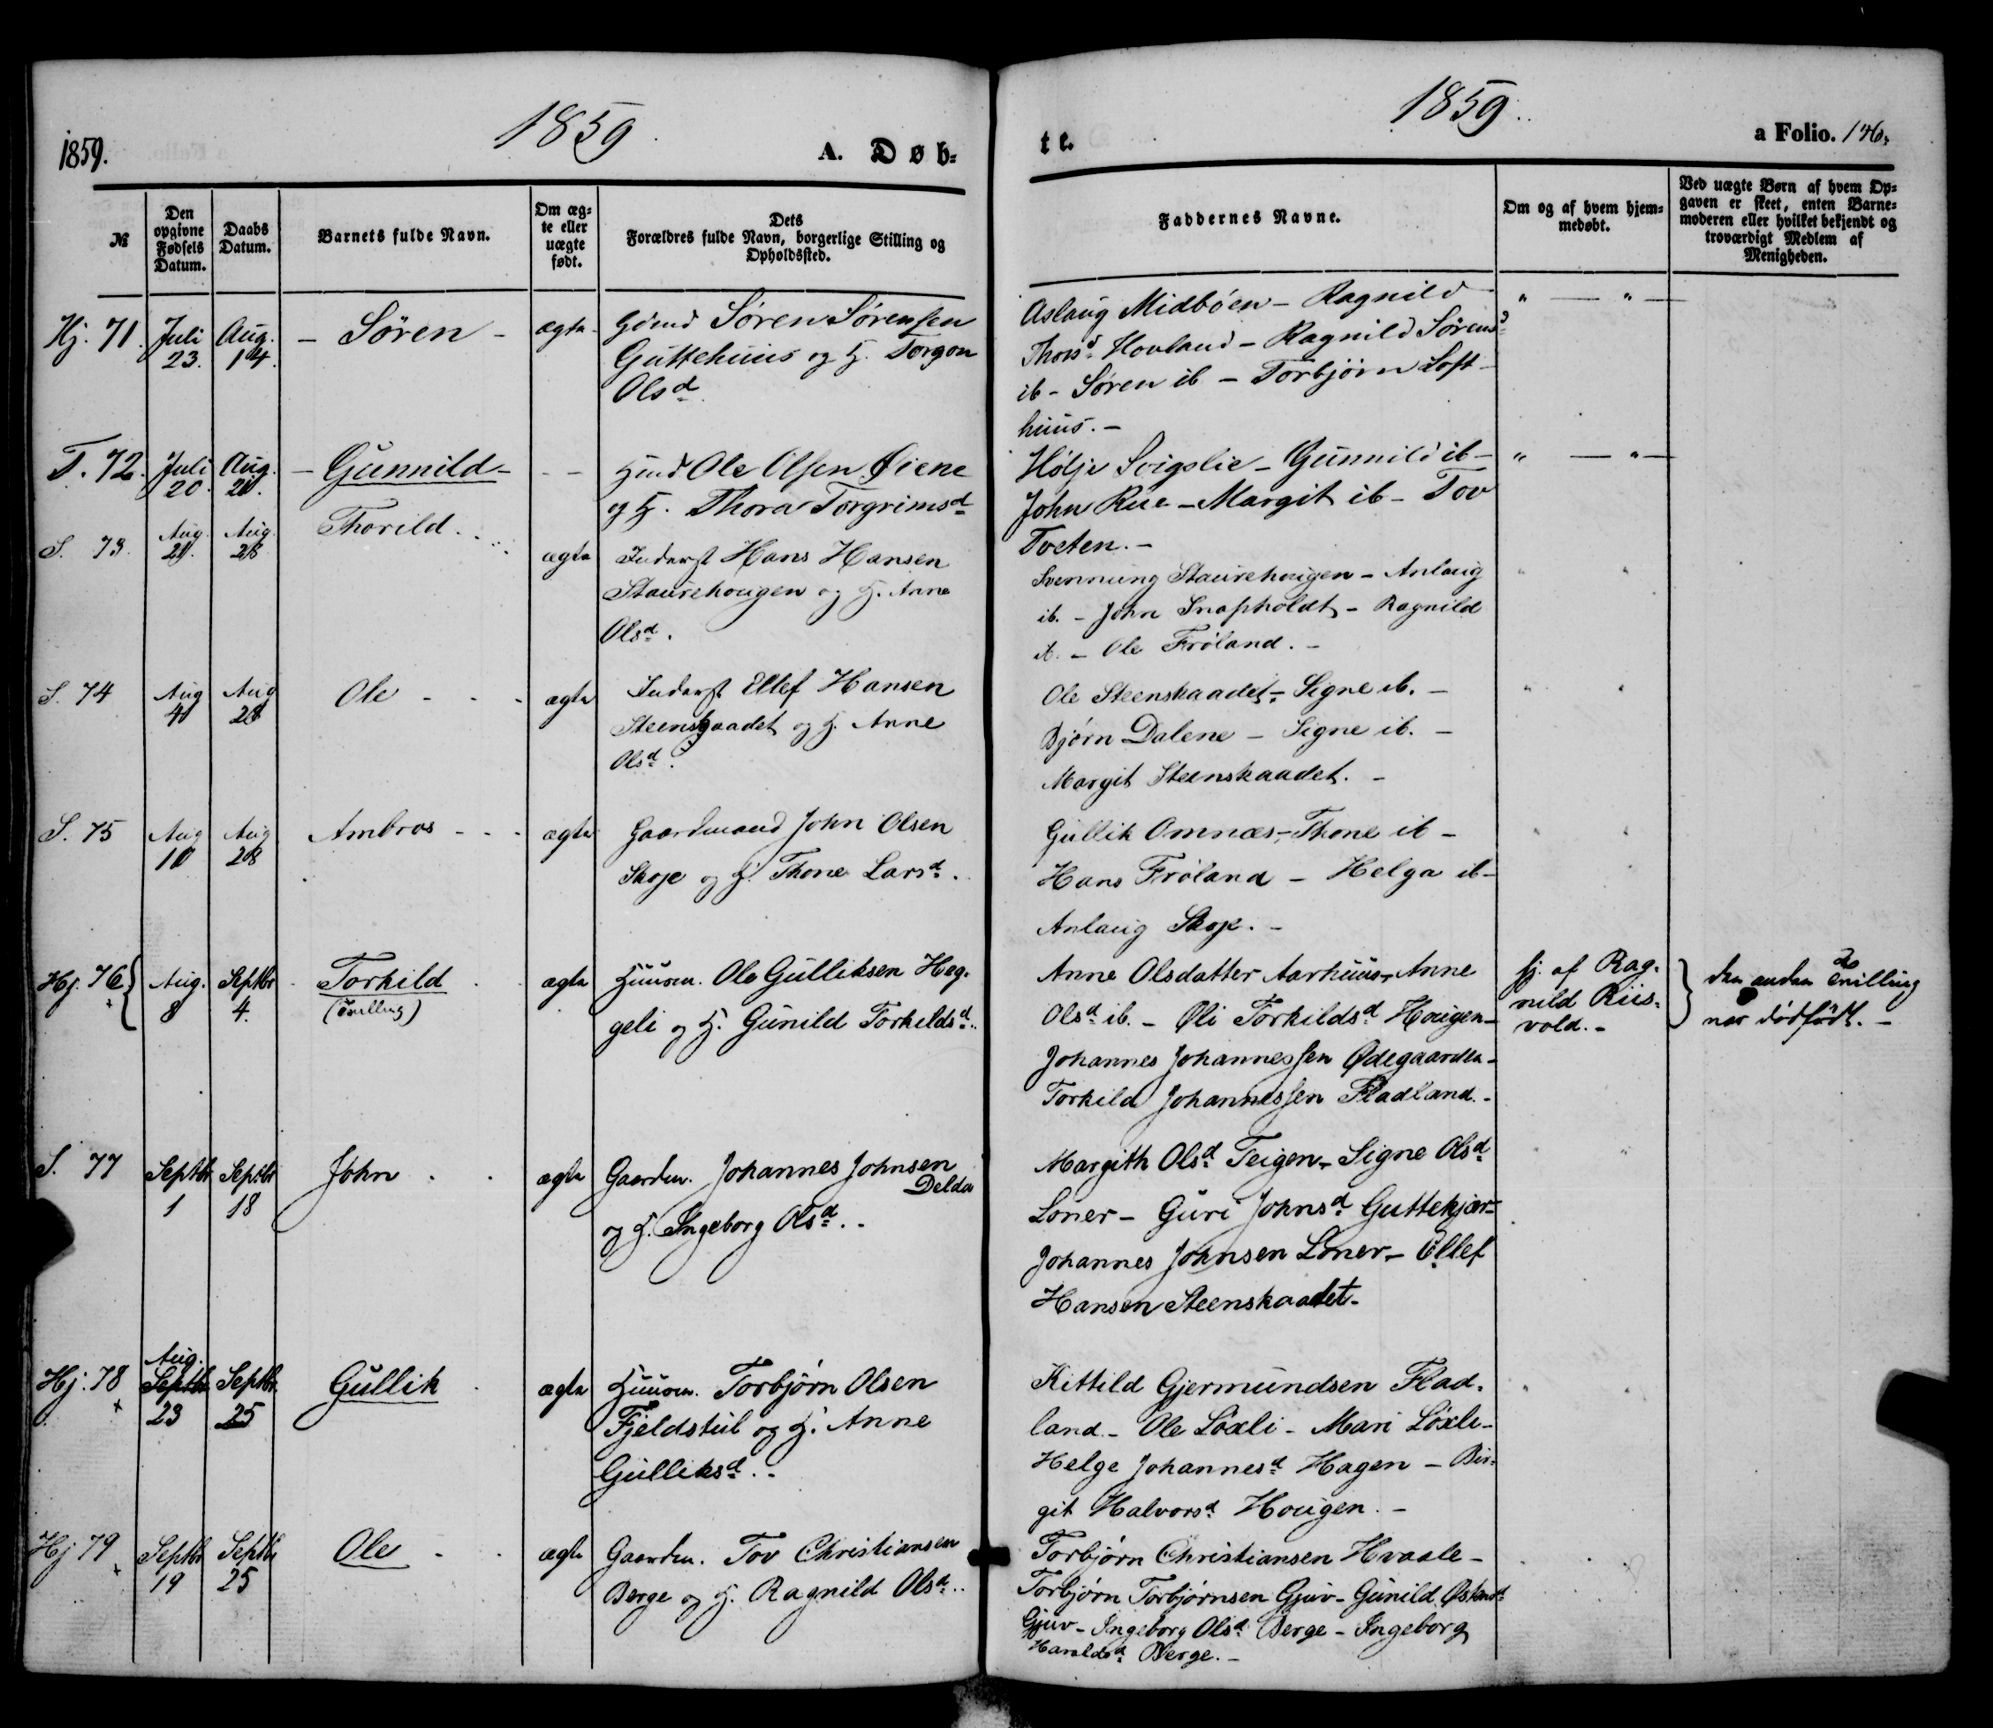 1859.
1859.
A. Døb=
№
Den opgivne Fødsels Datum.
Daabs Datum.
Barnets fulde Navn.
Om ægte eller uægte født.
Dets Forældres fulde Navn, borgerlige Stilling og Opholdssted.
Hj. 71. Juli 23. Aug. 14. – Søren – ægte
Gdmd Søren Sørensen
Guttehuus og H. Torgon
Olsd.
T. 72. Juli 20. Aug. 21. – Gunnild – – –
Hmd Ole Olsen Øiene
og H. Thora Torgrimsd
S. 73. Aug. 21. Aug. 28 Thorild. ægte
Inderst Hans Hansen
Staurehougen og H. Anne
Olsd.
S. 74 Aug 4 Aug 28 Ole - - - ægte
Inderst Ellef Hansen
Steenskaadet og H. Anne
Olsd.
S. 75 Aug 10 Aug 28 Ambros - - - ægte
Gaardmand John Olsen
Skoje og H. Thone Larsd.
Hj. 76 Aug. 8 Septbr 4. Torkild (Tvilling) ægte
Huusm. Ole Gulliksen Heg-
geli og H. Gunild Torkildsd.
S. 77 Septbr 1 Septbr 18 John ægte
Gaardm. Johannes Johnsen
Delda
og H. Ingeborg Olsd.
Hj. 78 Aug. Septbr 23 Septbr. 25 Gullik ægte
Huusm. Torbjørn Olsen
Fjeldstul og H. Anne
Gulliksd.
Hj 79 Septbr 19 Septbr 25 Ole ægte
Gaardm. Tov Christiansen
Berge og H. Ragnild Olsd.
1859.
te.
a Folio. 146.
Faddernes Navne.
Om og af hvem hjemmedøbt.
Ved uægte Børn af hvem Opgaven er skeet, enten Barnemoderen eller hvilket bekjendt og troværdigt Medlem af Menigheden.
Aslaug Midbøen – Ragnild
Thorsd. Hovland – Ragnild Sørensd
ib – Søren ib – Torbjørn Loft-
huus. –
Hølje Svigslie – Gunnild ib –
John Rue – Margit ib – Tov
Tveten. –
Svennung Staurehougen – Anlaug
ib. – John Snapholdt – Ragnild
ib. – Ole Frøland. –
Ole Steenskaadet – Signe ib. –
Bjørn Dalene – Signe ib. –
Margit Steenskaadet. –
Gullik Omnæs – Thone ib –
Hans Frøland – Helga ib –
Anlaug Skoje. –
Anne Olsdatter Aarhuus – Anne
Olsd ib. – Øli Torkildsd Hougen –
Johannes Johannessen Ødegaarden –
Torkild Johannessen Fladland. –
Hj. af Rag-
nild Riis-
vold. –
den anden Tvilling
var dødfødt. –
Margith Olsd Teigen – Signe Olsd
Loner – Guri Johnsd Guttekjær –
Johannes Johnsen Loner – Ellef
Hansen Steenskaadet –
Kittild Gjermundsen Flad-
land. – Ole Loxli – Mari Loxli –
Helge Johannesd. Hagen – Bir-
git Halvorsd. Hougen. –
Torbjørn Christiansen Hvaale –
Torbjørn Torbjørnsen Gjuv – Gunild
Gjuv – Ingeborg Olsd. Berge – Ingeborg
Haraldsd. Berge. –